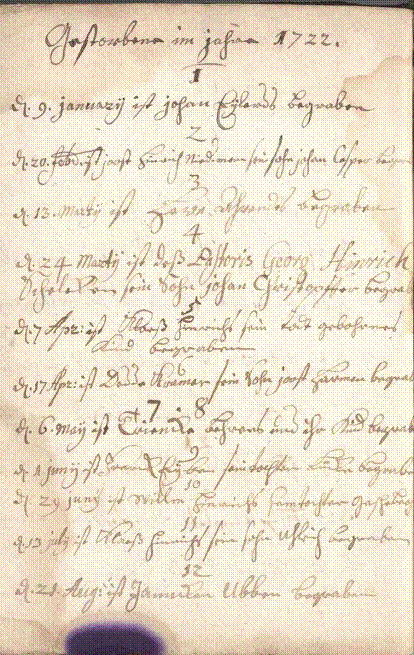 Gestorbene im jahre 1722.
1
d. 9. january ist johan Eylerds begraben
2
d. 20. Febr. ist joost Hinrich sein sohn johan Casper begra
3
d. 13. Marty ist begraben
4
d. 24 Marty ist deß Pastoris Georg Hinrich
sein Sohn johan Christoffer begrab
5
d. 7 Apr: ist Klaeß Hinrichs sein todt gebohrnes
Kind begraben
6
d. 17 Apr: ist Kramer sein Sohn joost Harmen begrab
7. 8
d. 6. May ist Behrens und ihr Kind begrab
9
d. 1 juny ist sein tochter begrabe
10
d. 29 juny ist Willm Hinrichs sein tochter
11
d. 13 july ist Klaeß Hinrichs sein sohn Ulrich begraben
12
d. 21. Aug: ist Ubben begraben